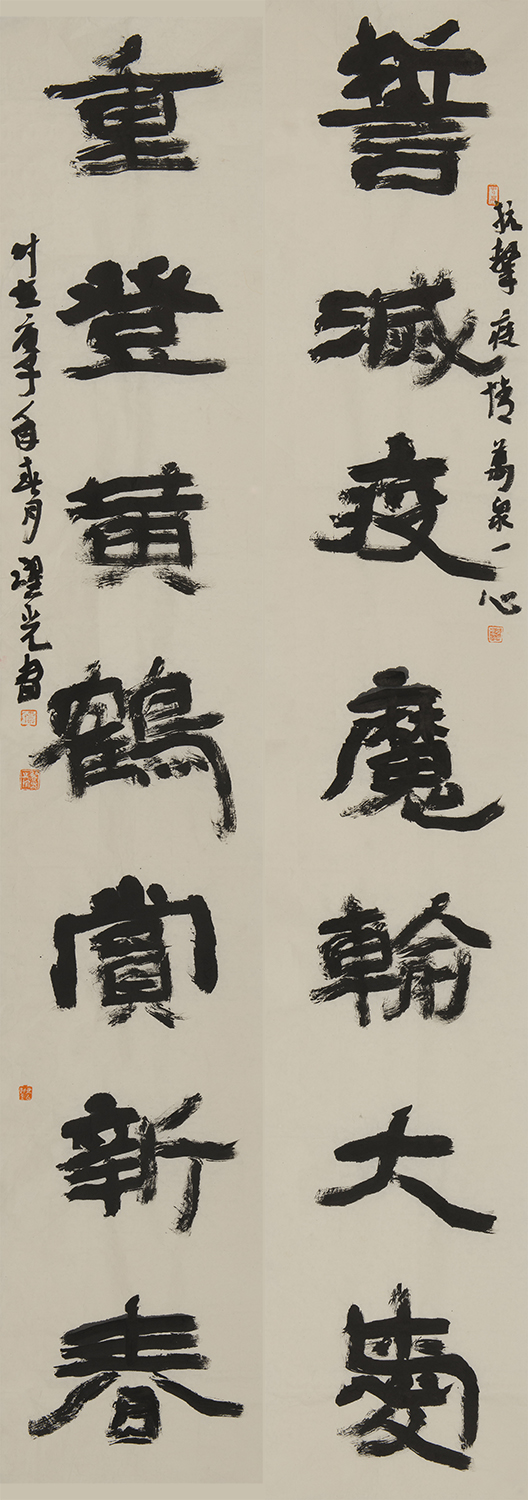 抗擊疫情萬眾一心
誓滅疫魔輸大愛
重登黃鶴賞新春
时在庚子年春月耀光書